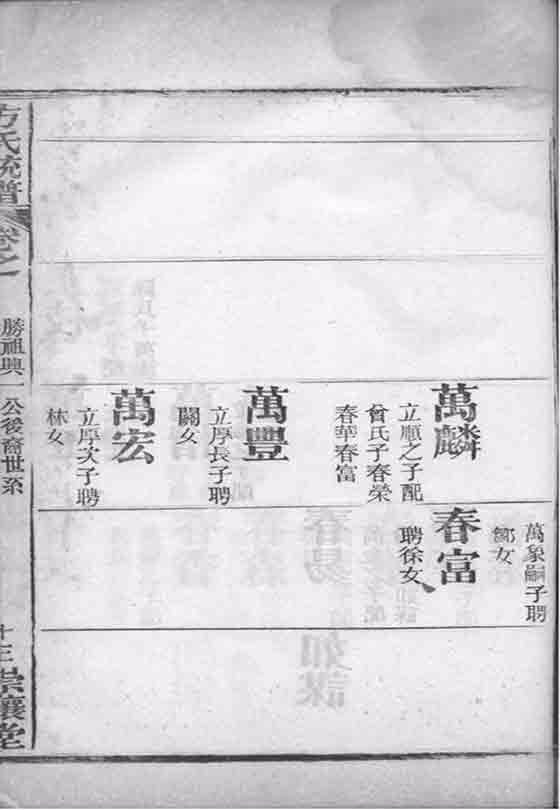 萬麟
立順之子配
曾氏子春榮
春華春富
萬豐
立厚長子聘
闕女
萬宏
立厚次子聘
林女
萬象嗣子聘
鄒女
春富
聘徐女
方氏統譜
卷之一
勝祖興一公後裔世系
十三
崇讓堂